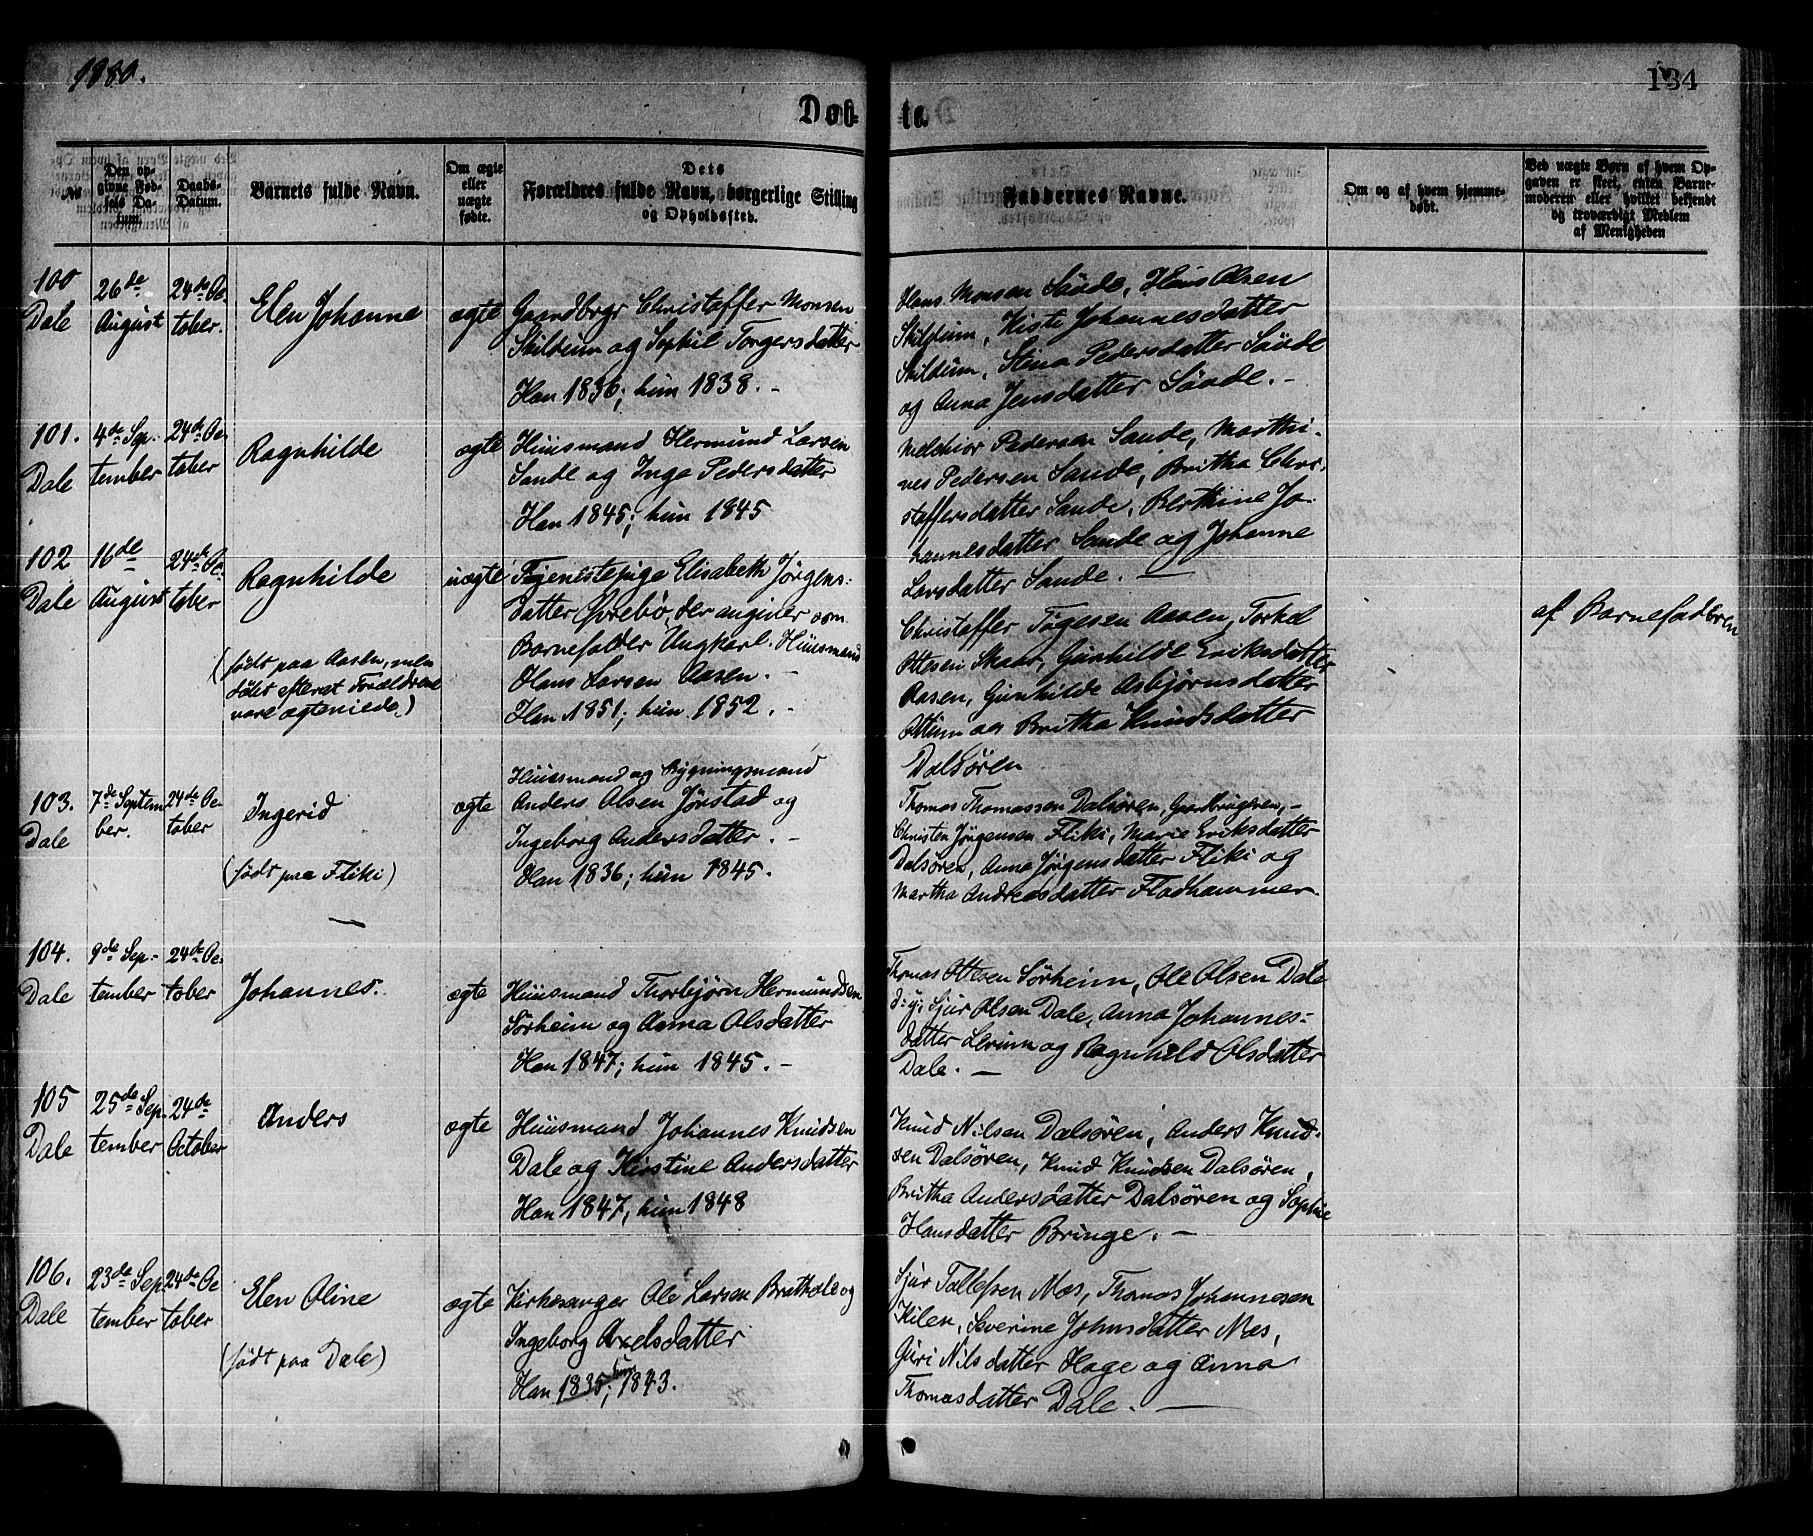 1880.
134
Døb-
te.
No
Den op-
givne Fød-
sels Da-
tum.
Daabs-
Datum.
Barnets fulde Navn.
Om ægte
eller
uægte
fødte.
Dets
Forældres fulde Navn, borgerlige Stilling
og Opholdssted.
Faddernes Navne.
Om og af hvem hjemme-
døbt.
Ved uægte Børn af hvem Op-
gaven er skeet, enten Barne-
moderen eller hvilket bekjendt
og troværdigt Medlem
af Menigheden
100
Dale
26de
August
24de Oc-
tober.
Elen Johanne
ægte
Gaardbrgr Christoffer Monsen
Skildeim og Sophie Torgersdatter
Han 1836; hun 1838. -
Hans Monsen Sände, Hans Olsen
Skildeim, Kiste Johannesdatter
Skildeim, Stina Pedersdatter Sände
og Anna Jensdatter Sände. -
101.
Dale
4de Sep-
tember
24de Oc-
tober
Ragnhilde
ægte
Huusmand Hermund Larsen
Sande og Inga Pedersdatter
Han 1845; hun 1845
Melchior Pedersen Sande, Marthi-
nes Pedersen Sande, Britha Chri-
stoffersdatter Sande, Berthine Jo-
hannesdatter Sande og Johanne
Larsdatter Sande. —
102
Dale
16de
August
24de Oc-
tober
Ragnhilde
(født paa Aasen, men
døbt efterat Forældrene
vare ægteviede)
uægte
Tjenestepige Elisabeth Jørgens-
datter Øvrebø, der angiver som
Barnefader Ungkarl Huusmand
Hans Larsen Aasen. -
Han 1851; hun 1852. -
Christoffer Tøgesen Aasen, Torkel
Ottesen Skaar, Gunhilde Eriksdatter
Aasen, Gunhilde Asbjørnsdatter
Ottum og Britha Knudsdatter
Dalsøren
af Barnefaderen
103.
Dale
7de Septem
ber.
24de Oc-
tober
Ingerid
(født paa Fliki)
ægte
Huusmand og Bygningsmand
Anders Olsen Jørstad og
Ingeborg Andersdatter. -
Han 1836; hun 1845.
Thomas Thomassen Dalsøren, Gaardbrugeren, -
Christen Jørgensen Fliki, Marie Eriksdatter
Dalsøren, Anna Jørgensdatter Fliki og
Martha Andreasdatter Fladhammer
—
104.
Dale
9de Sep-
tember
24de Oc-
tober
Johannes.
ægte
Huusmand Thorbjørn Hermundsen
Sørheim og Anna Olsdatter
Han 1847; hun 1845. -
Thomas Ottesen Sørheim, Ole Olsen Dale
d: y: Sjur Olsen Dale, Anna Johannes-
datter Lerum og Ragnhild Olsdatter
Dale. —
105
Dale
25de Sep-
tember
24de
October
Anders
ægte
Huusmand Johannes Knudsen
Dale og Kirstine Andersdatter
Han 1847, hun 1848
Knud Nilsen Dalsøren, Anders Knud-
sen Dalsøren, Knud Knudsen Dalsøren,
Britha Andersdatter Dalsøren og Sophie
Hansdatter Bringe. -
106.
Dale
23de Sep-
tember
24de Oc
tober
Elen Oline
(født paa Dale)
ægte
Kirkesanger Ole Larsen Bratkole og
Ingeborg Axelsdatter
Han 1835; hun 1843.
Sjur Tollefsen Næs, Thomas Johannesen
Kilen, Severine Johnsdatter Næs,
Guri Nilsdatter Hage og Anna
Thomasdatter Dale. —